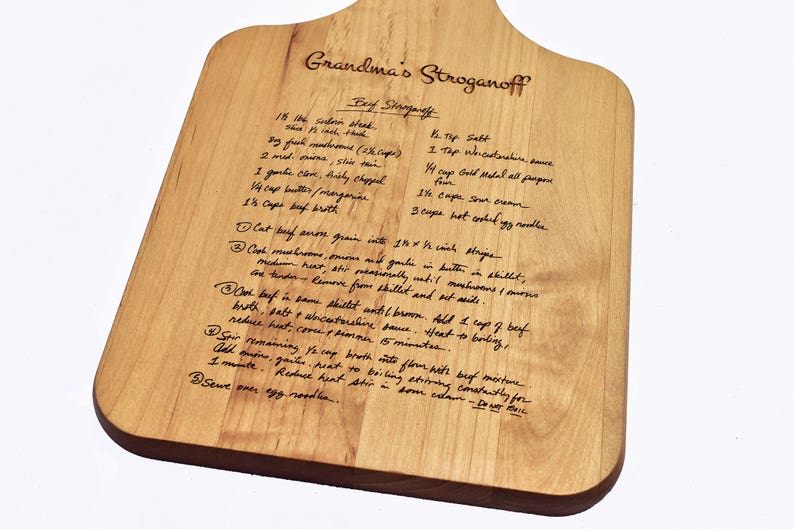 Grandma's Stroganoff
Beef Stroganoff
1½ lbs sirloin steak,
slice ½ inch thick
8oz fresh mushrooms (2½ cups)
2 med. onions, slice thin
1 garlic clove, finely chopped
¼ cup butter/margarine
1½ cups beef broth
½ tsp salt
1 tsp Worcestershire sauce
¼ cup Gold Medal all purpose
flour
1½ cups sour cream
3 cups hot cooked egg noodles
① Cut beef across grain into 1½ x ½ inch strips
② Cook mushrooms, onions and garlic in butter in skillet,
medium heat, stir occasionally until mushrooms + onions
are tender - Remove from skillet and set aside.
③ Cook beef in same skillet until brown. Add 1 cup of beef
broth, salt + Worcestershire sauce. Heat to boiling,
reduce heat, cover + simmer 15 minutes.
④ Stir remaining ½ cup broth into flour with beef mixture.
Add onions, garlic. heat to boiling stirring constantly for
1 minute. Reduce heat stir in sour cream - DO NOT BOIL
⑤ Serve over egg noodles.